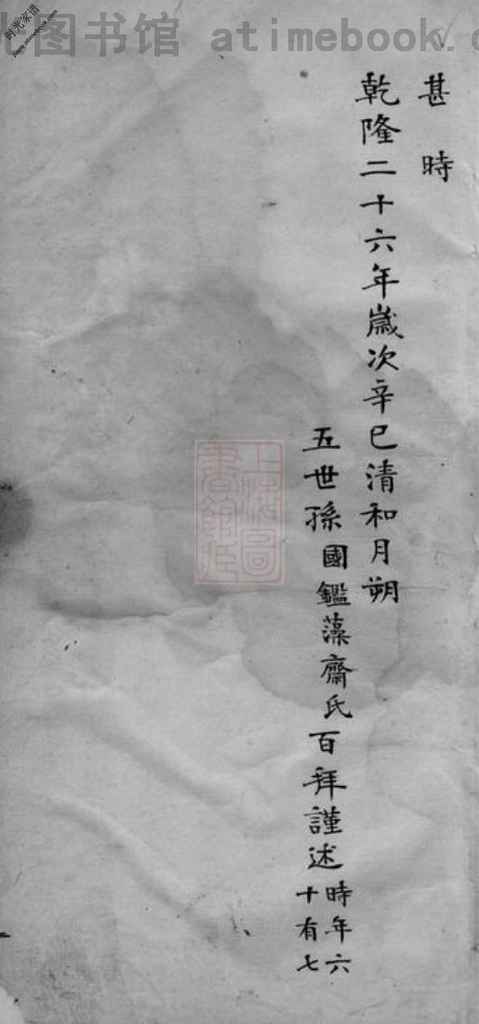 甚時
乾隆二十六年歲次辛巳清和月朔
五世孫國鑑藻齋氏百拜謹述
時年六
十有七
上海圖
書館藏
北图书馆 atimebook.c
时光家谱